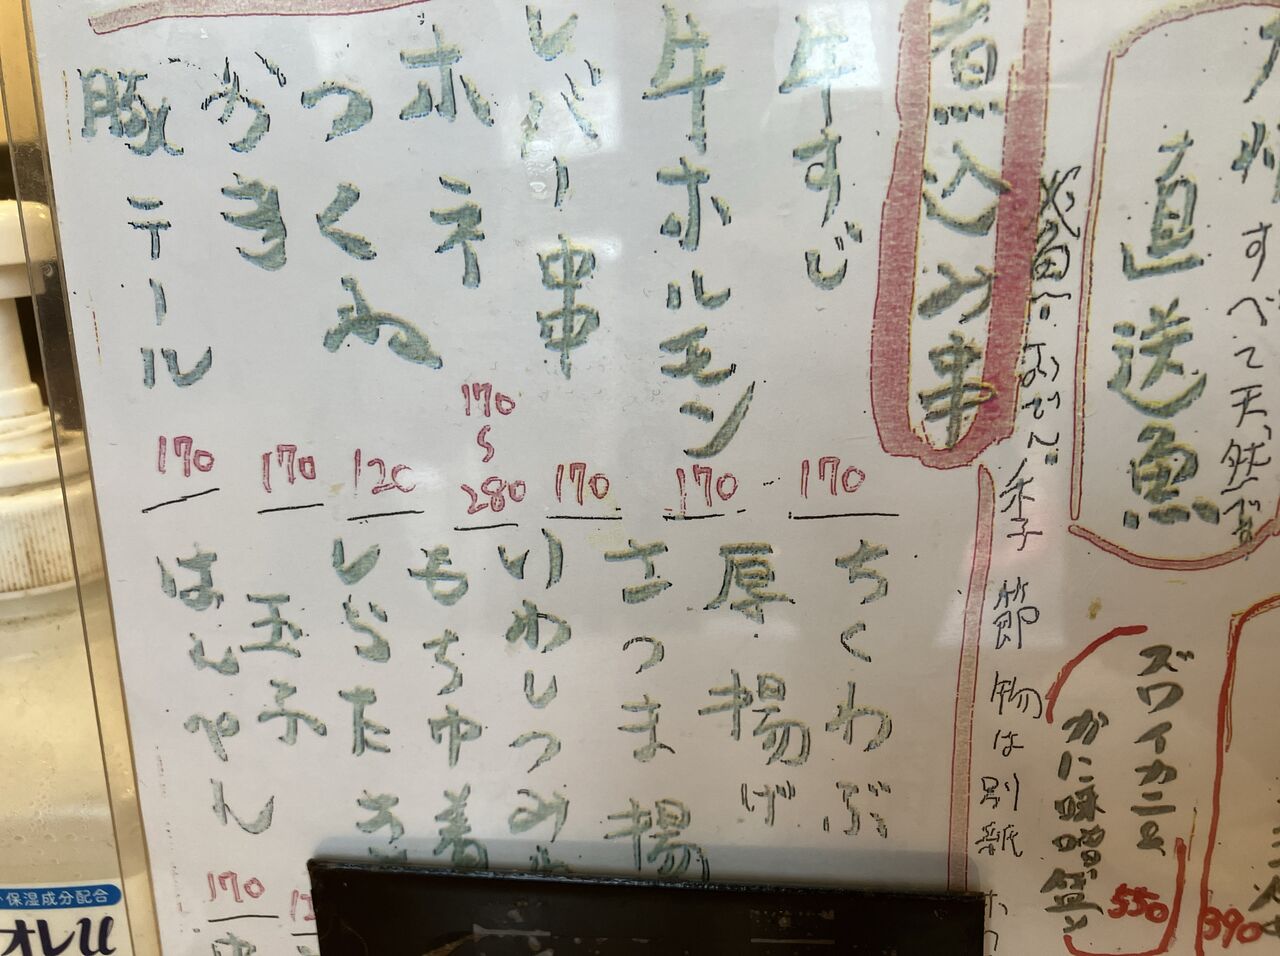 直送魚
すべて天然
ズワイカニ
550
390
煮込み串
季節物は別紙
牛すじ
170
牛ホルモン
170
レバー串
170
ホネ
170
〜
280
つくね
120
かき
170
豚テール
170
ちくわぶ
厚揚げ
さつま揚
いわしつみ
もち巾着
しらたき
玉子
はんぺん
170
保湿成分配合
オレu